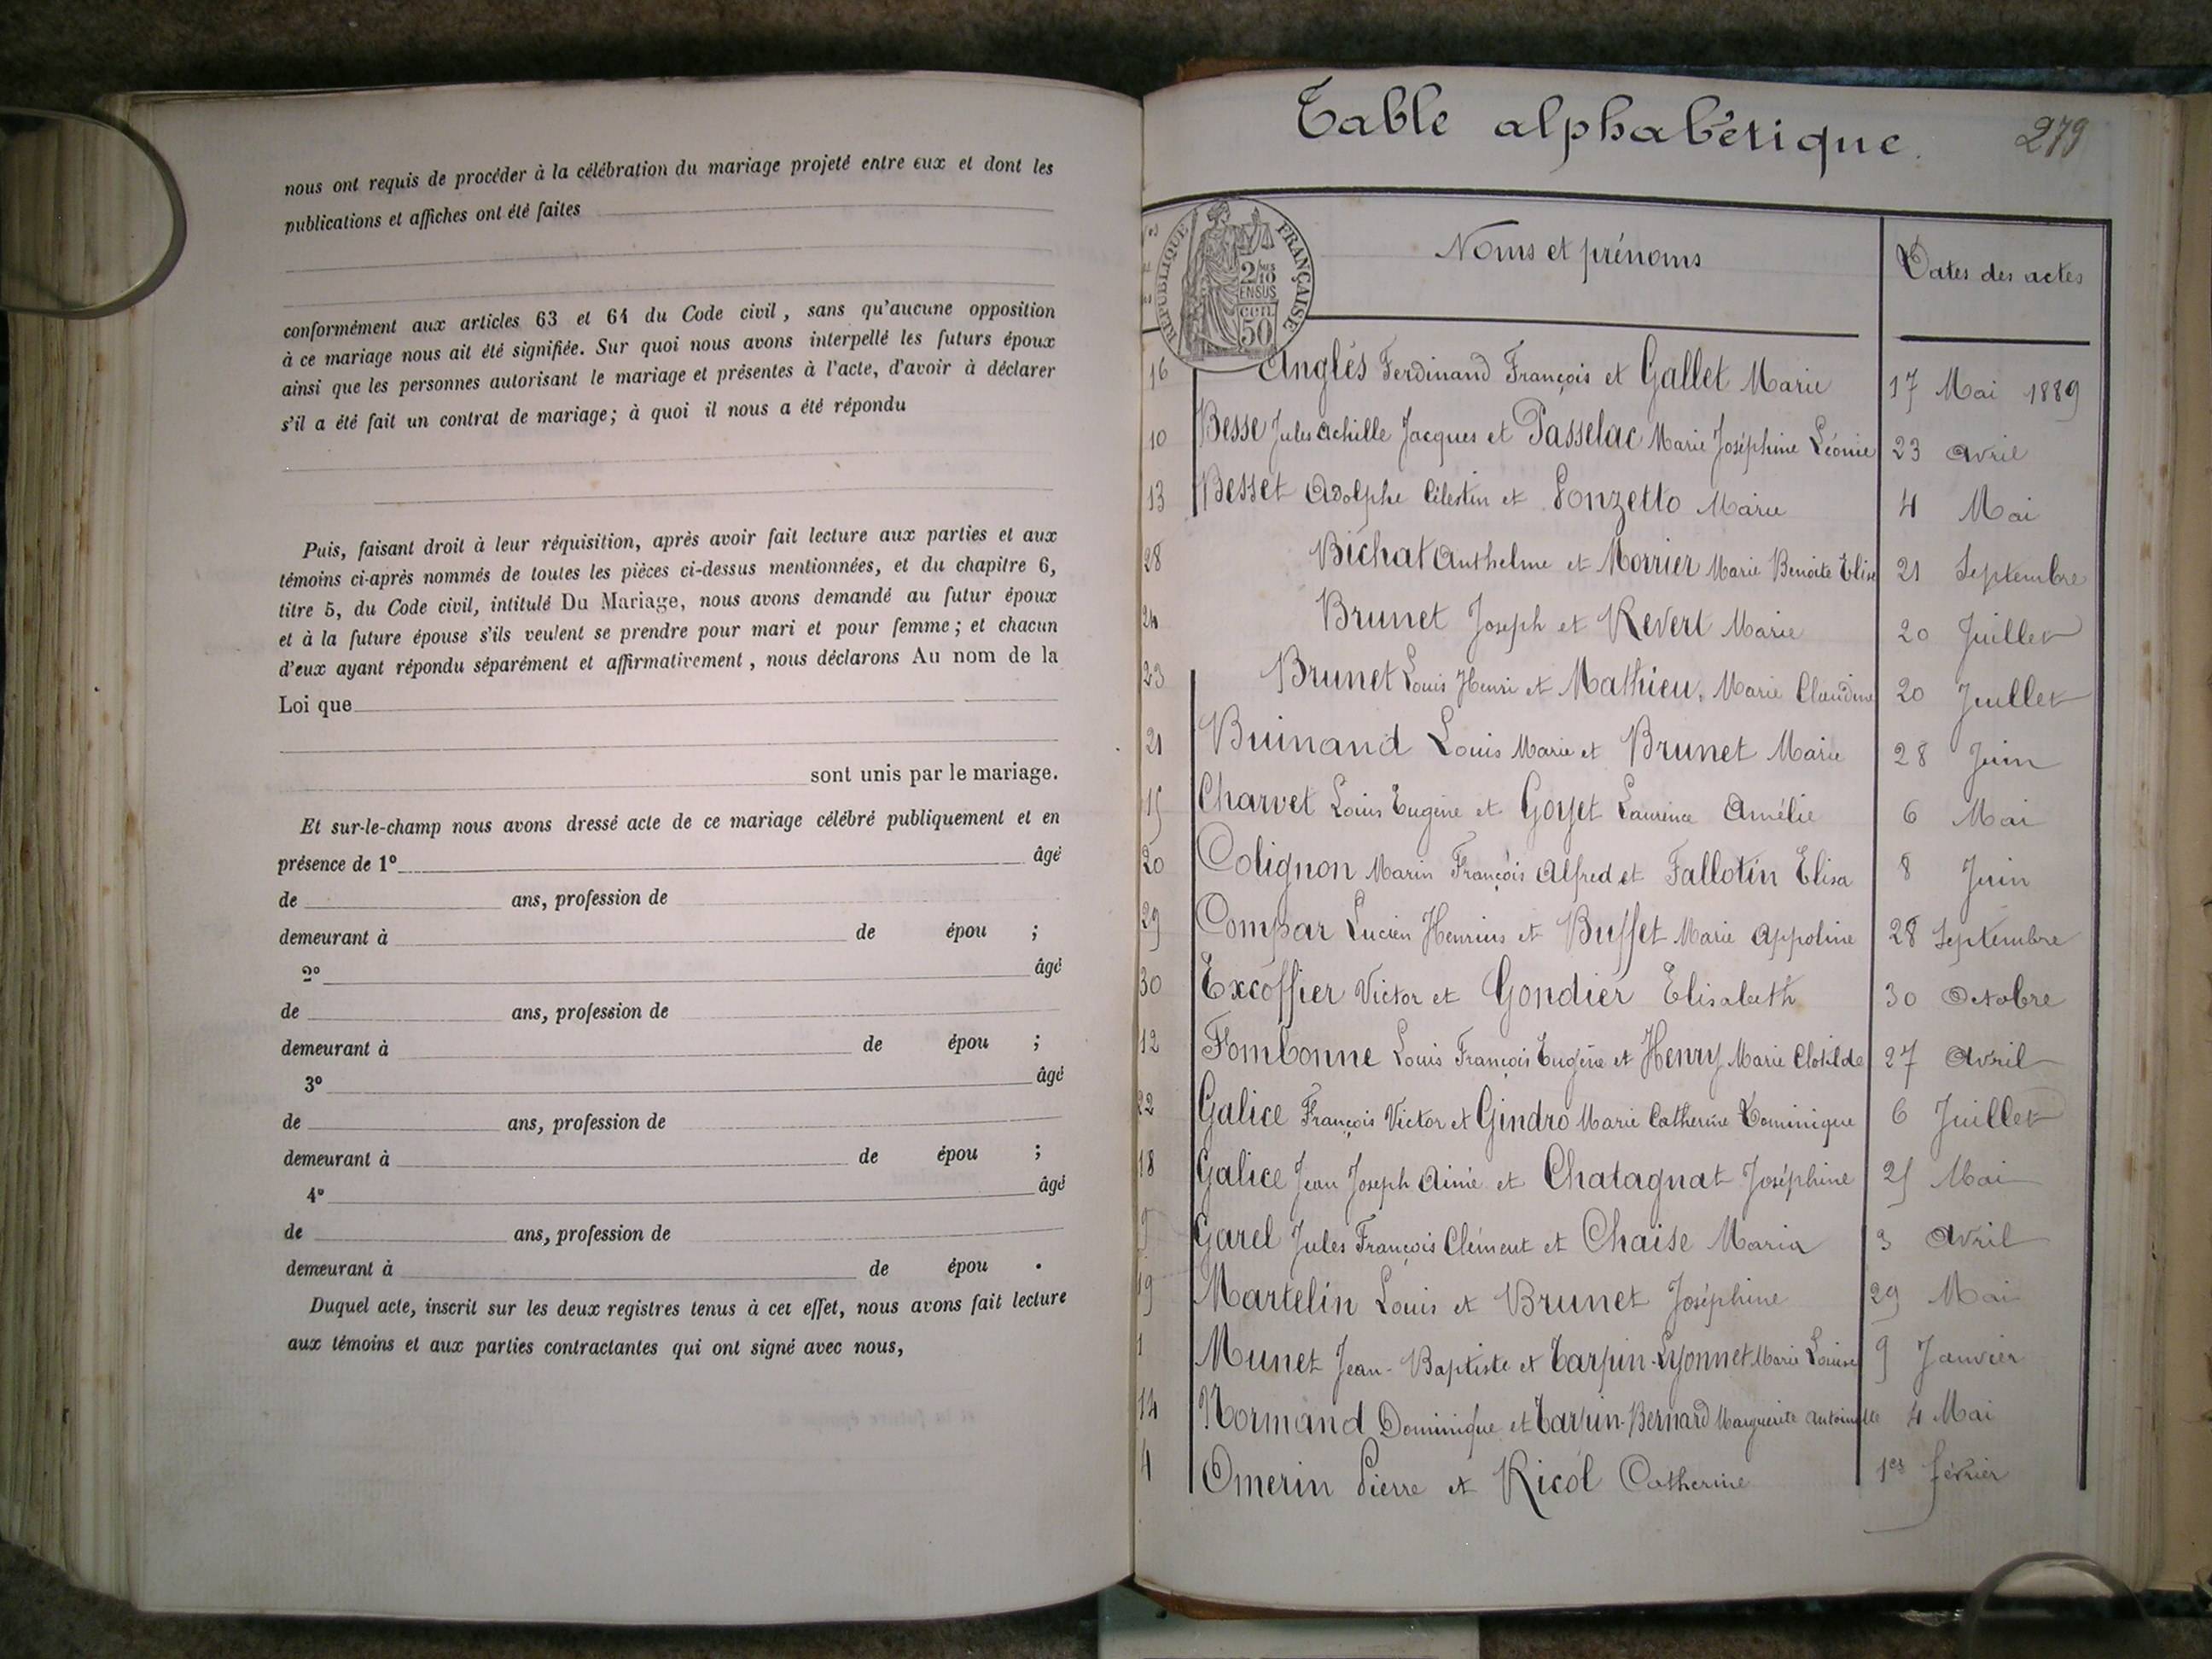 nous ont requis de procéder à la célébration du mariage projeté entre eux et dont les
publications et affiches ont été faites
conformément aux articles 63 et 64 du Code civil, sans qu'aucune opposition
à ce mariage nous ait été signifiée. Sur quoi nous avons interpellé les futurs époux
ainsi que les personnes autorisant le mariage et présentes à l'acte, d'avoir à déclarer
s'il a été fait un contrat de mariage; à quoi il nous a été répondu
Puis, faisant droit à leur réquisition, après avoir fait lecture aux parties et aux
témoins ci-après nommés de toutes les pièces ci-dessus mentionnées, et du chapitre 6,
titre 5, du Code civil, intitulé Du Mariage, nous avons demandé au futur époux
et à la future épouse s'ils veulent se prendre pour mari et pour femme; et chacun
d'eux ayant répondu séparément et affirmativement, nous déclarons Au nom de la
Loi que
sont unis par le mariage.
Et sur-le-champ nous avons dressé acte de ce mariage célébré publiquement et en
présence de 1º âgé
de ans, profession de
demeurant à de épou ;
2º âgé
de ans, profession de
demeurant à de épou ;
3º âgé
de ans, profession de
demeurant à de épou ;
4º âgé
de ans, profession de
demeurant à de épou .
Duquel acte, inscrit sur les deux registres tenus à cet effet, nous avons fait lecture
aux témoins et aux parties contractantes qui ont signé avec nous,
Table alphabétique. 279
RÉPUBLIQUE FRANÇAISE
2/10
EN SUS
50
Noms et prénoms Dates des actes
16 Anglès Ferdinand François et Gallet Marie 17 Mai 1889
10 Besse Jules Achille Jacques et Passelac Marie Joséphine Léonie 23 Avril
13 Besset Adolphe Célestin et Ponzetto Marie 4 Mai
28 Bichat Anthelme et Morrier Marie Benoite Elise 21 Septembre
24 Brunet Joseph et Revert Marie 20 Juillet
23 Brunet Louis Henri et Mathieu, Marie Claudine 20 Juillet
21 Buinand Louis Marie et Brunet Marie 28 Juin
15 Charvet Louis Eugène et Goyet Laurence Amélie 6 Mai
20 Colignon Marin François Alfred et Fallotin Elisa 8 Juin
29 Compar Lucien Henrius et Buffet Marie Appoline 28 Septembre
30 Excoffier Victor et Gondier Elisabeth 30 Octobre
12 Fombonne Louis François Eugène et Henry Marie Clotilde 27 Avril
22 Galice François Victor et Gindro Marie Catherine Dominique 6 Juillet
18 Galice Jean Joseph Aimé et Chatagnat Joséphine 25 Mai
9 Garel Jules François Clément et Chaise Maria 3 Avril
19 Martelin Louis et Brunet Joséphine 29 Mai
1 Munet Jean-Baptiste et Tarpin-Lyonnet Marie Louise 9 Janvier
14 Normand Dominique et Tarpin-Bernard Marguerite Antoinette 4 Mai
4 Omerin Pierre et Ricol Catherine 1er février